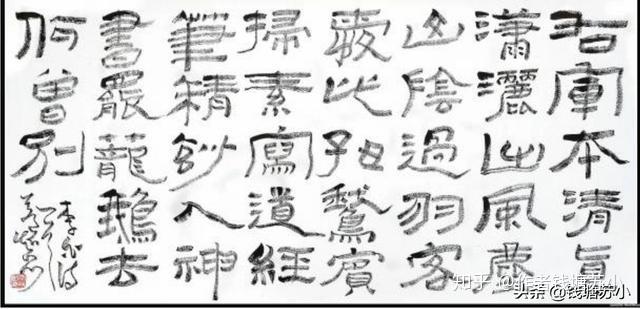 右軍本清真
瀟灑出風塵
山陰過羽客
愛此好鵞賓
掃素寫道經
筆精妙入神
書罷籠鵝去
何曾別
李白詩
知乎 @作者钱塘苏小
头条 @钱塘苏小